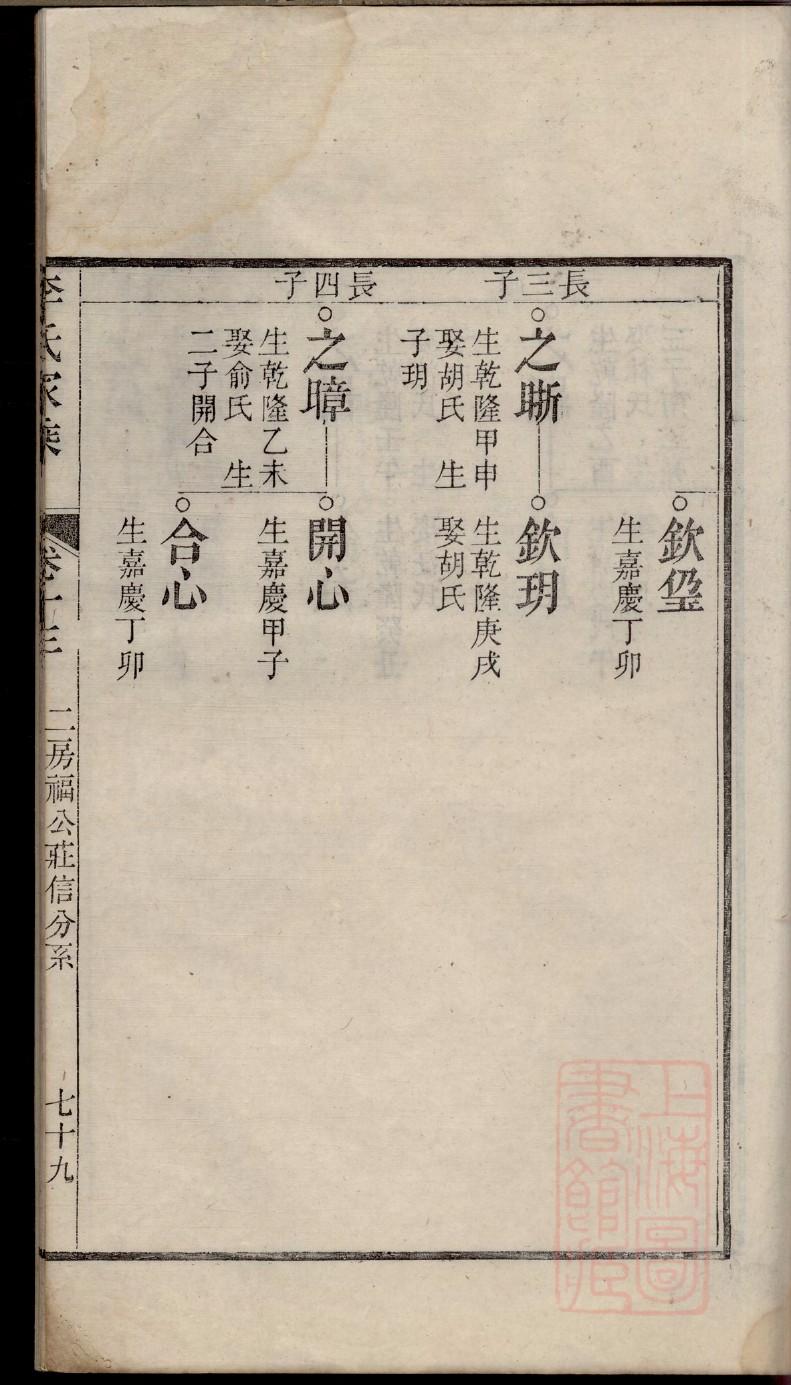 欽
生嘉慶丁卯
長三子
之晰
生乾隆甲申
娶胡氏　生
子玥
欽玥
生乾隆庚戌
娶胡氏
長四子
之暲
生乾隆乙未
娶俞氏　生
二子開合
開心
生嘉慶甲子
合心
生嘉慶丁卯
李氏家乘
卷十三
二房福公莊信分系
七十九
上海圖
書館藏